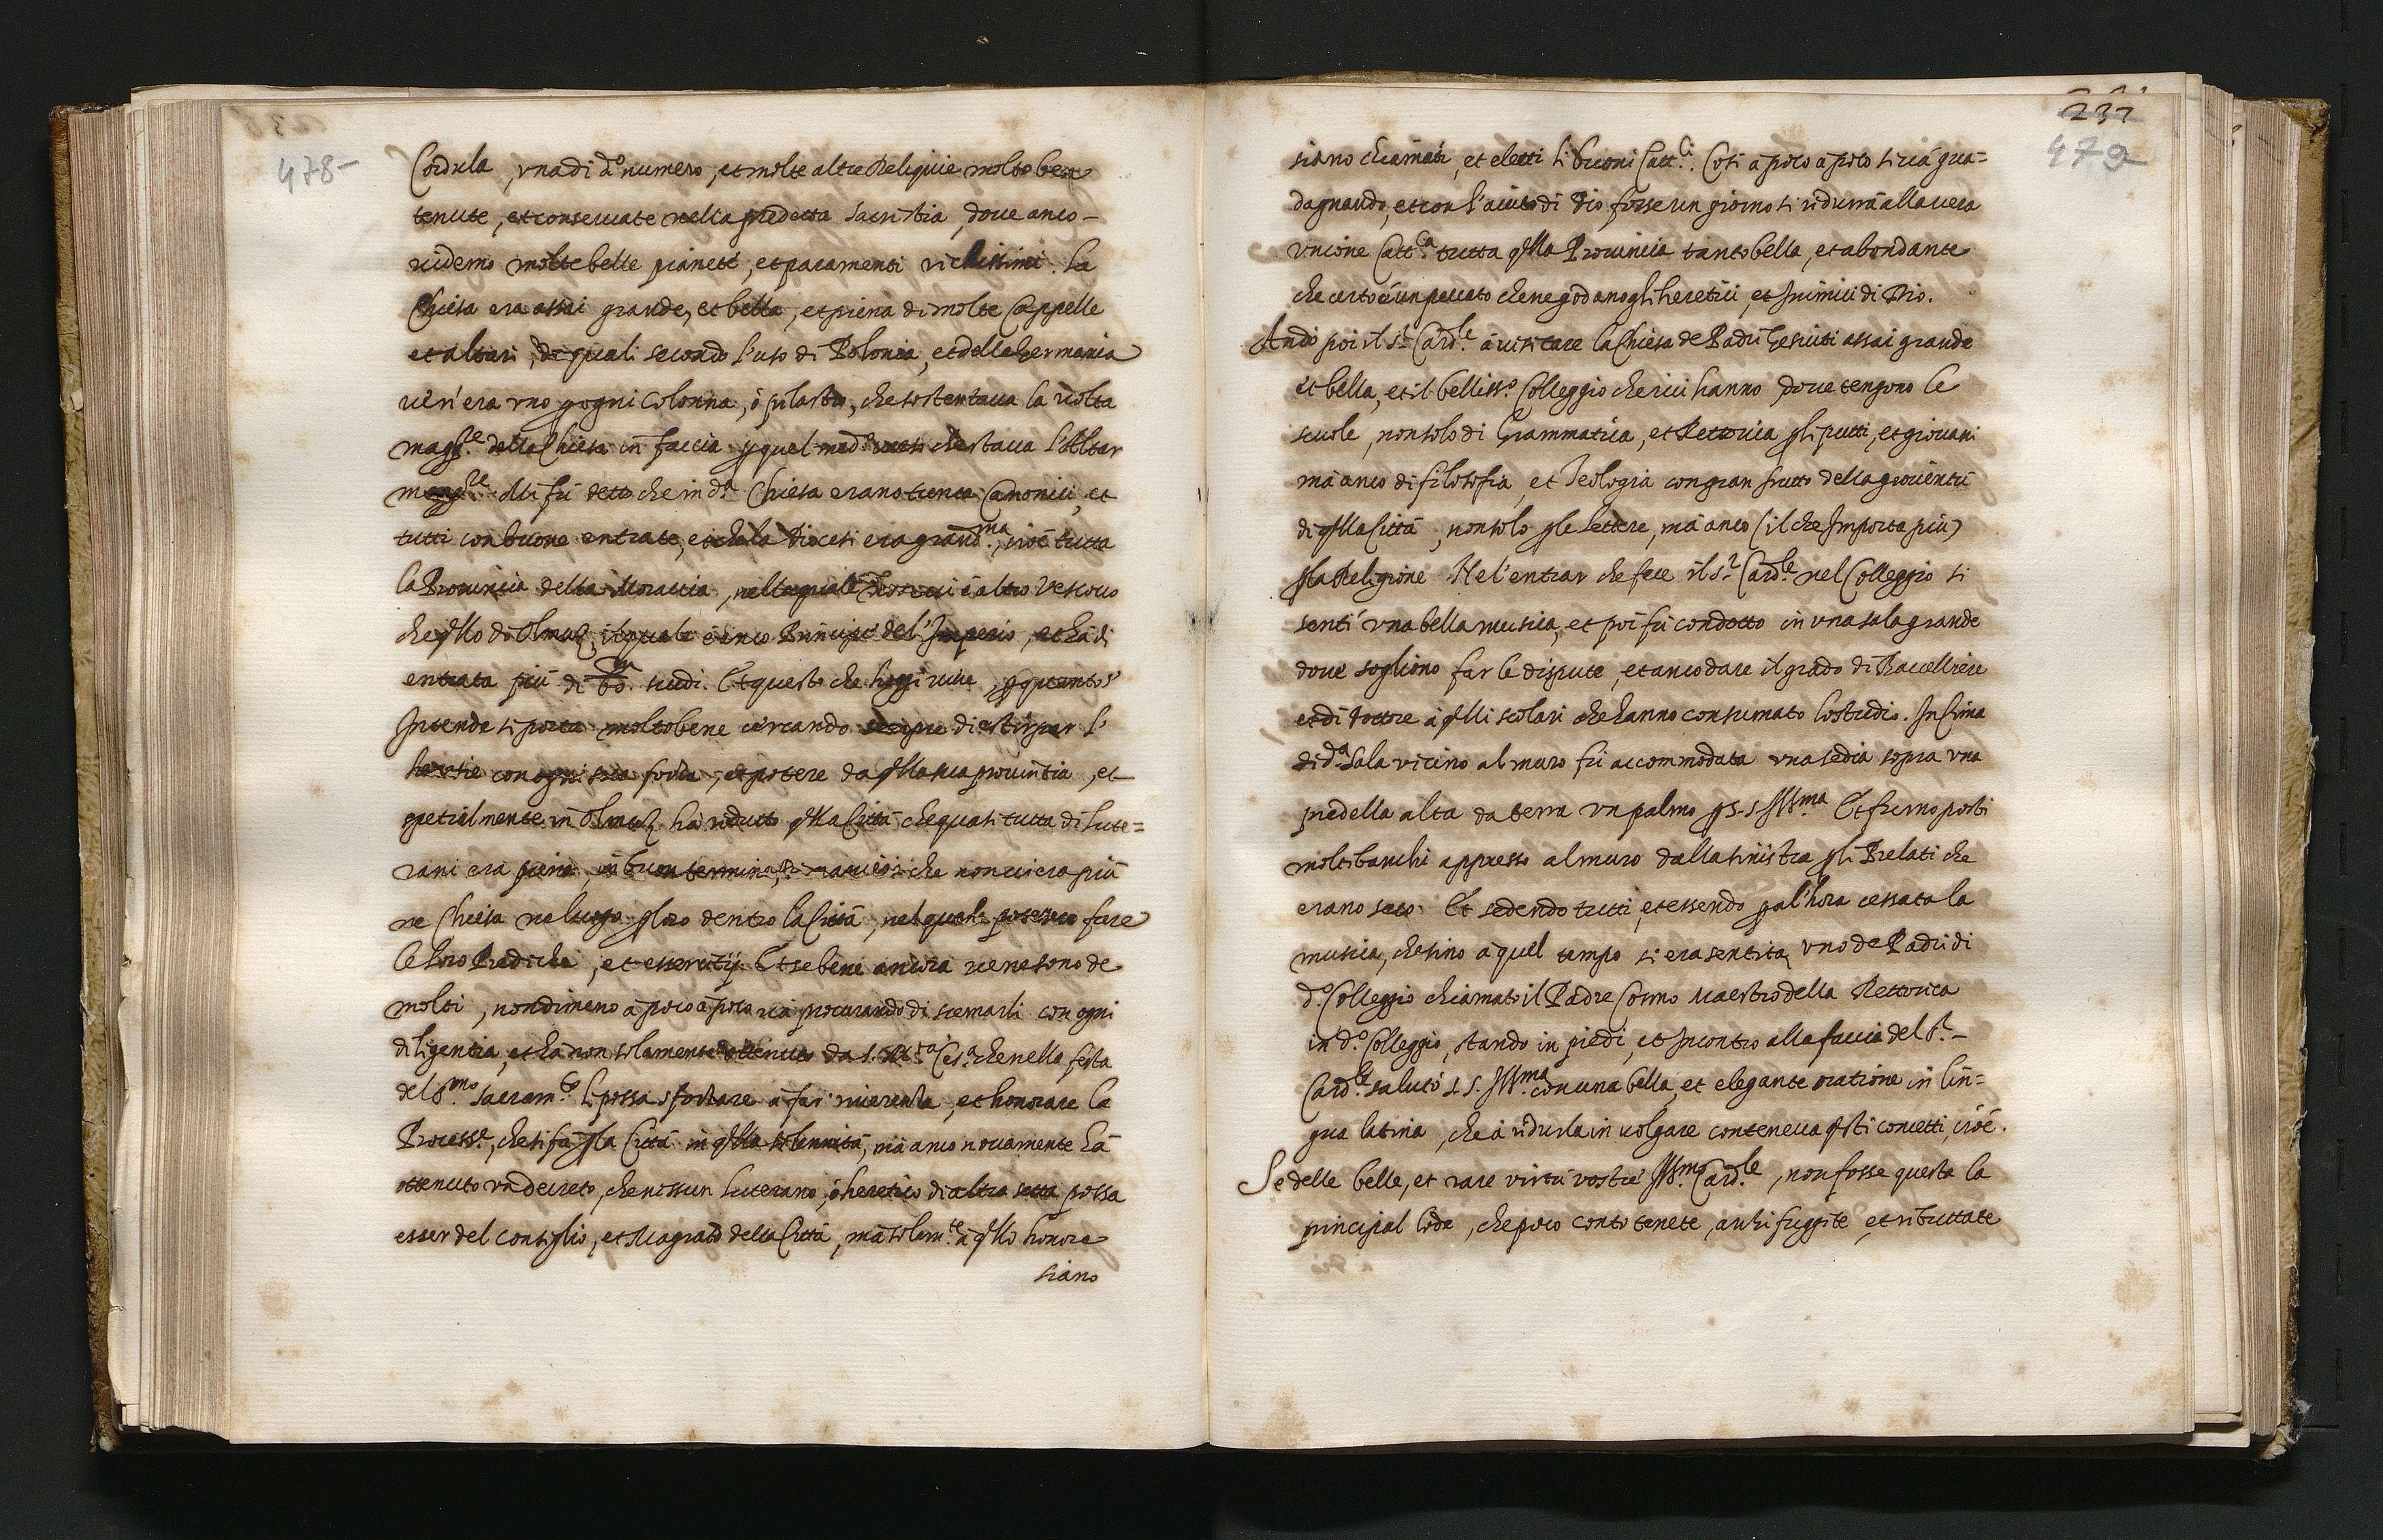 478
Cordula, una di d.o numero, et molte altre Reliquie molto ben
tenute, et conservate nella predetta Sacristia, dove anco-
videmo molte belle pianete, et paramenti richissimi. La
Chiesa era assai grande, et bella, et piena di molte Cappelle
et altari, de quali secondo l'uso di Polonia, et della Germania
ve n'era uno p ogni Colonna, ò pilastro, che sostentava la volta
magg.re della Chiesa in faccia p quel med.o che stava l'Altar
magg.re Mi fù detto che in d.a Chiesa erano trenta Canonici, et
tutti con buone entrate, et che la Diocesi era grand.ma, cioè tutta
la Provincia della Moravia, nella quale non vi è altro Vescovo
che q̃llo di Olmuz, il quale è anco Principe del'Imperio, et hà di
entrata più di scudi. Et questo che hoggi vive p quanto s'
Intende si porta molto bene cercando sempre di estirpar l'
heresie con ogni sua forza, et potere da q̃lla sua provintia, et
spetialmente in Olmuz hà ridutto q̃lla Città che quasi tutta di lute=
rani era piena, in buon termine, che non vi era più
ne Chiesa ne luogo p loro dentro la Città, nel quale potessero fare
le loro Prediche, et essercitij. Et se bene ancora ve ne sono de
molti, nondimeno à poco à poco và procurando di scemarli con ogni
diligentia, et hà non solamente ottenuto da S. M.tà Ces.a che nella festa
del S.mo Sacram.to li possa sforzare à far riverenza, et honorare la
Process.e, che si fà p la Città in q̃lla solennità, mà anco novamente hà
ottenuto un decreto, che nissun luterano, ò heretico di altra setta possa
esser del Consiglio, et Magrato della Città, mà solam.te à q̃llo honore
siano
237
479
siano chiamati, et eletti li buoni Catt.ci. Così à poco à poco si và gua=
dagnando, et con l'aiuto di Dio forse un giorno si ridurrà alla vera
unione Catt.ca tutta q̃lla Provincia tanto bella, et abondante
che certo è un peccato che ne godano gli heretici, et Inimici di Dio.
Andò poi il S.r Card.le à visitare la Chiesa de Padri Gesuiti assai grande
et bella, et il belliss.o Colleggio che ivi hanno dove tengono le
scuole, non solo di Grammatica, et Rettorica p li putti, et giovani
mà anco di filosofia, et Teologia con gran frutto della gioventù
di q̃lla Città, non solo p le lettere, mà anco (il che Importa più)
p la Religione. Nel'entrar che fece il S.r Card.le nel Colleggio si
sentì una bella musica, et poi fù condotto in una sala grande
dove sogliono far le dispute, et anco dare il grado di Baccelliere
et di Dottore à q̃lli scolari che hanno consumato lo studio. In Cima
di d.a Sala vicino al muro fù accommodata una sedia sopra una
predella alta da terra un palmo p S. S. Ill.ma Et furno posti
molti banchi appresso al muro dalla sinistra p li Prelati che
erano seco. Et sedendo tutti, et essendo p al'hora cessata la
musica, che sino à quel tempo si era sentita, uno de Padri di
d.o Colleggio chiamato il Padre Cosmo Maestro della Rettorica
in d.o Colleggio, stando in piedi, et Incontro alla faccia del S.r-
Card.le salutò S. S. Ill.ma con una bella, et elegante oratione in lin=
gua latina, che à ridurla in volgare conteneva q̃sti concetti, cioè.
Se delle belle, et rare virtù vostre Ill.mo Card.le, non fosse questa la
principal lode, che poco conto tenete, anzi fuggite, et ributtate